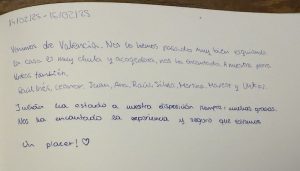 14/02/25 - 16/02/25
Venimos de Valencia. Nos lo hemos pasado muy bien
la casa es muy chula y acogedora, nos ha encantado. A nuestros perros
también.
Raúl, Inés, Leonor, Juan, Ana, Raúl, Silvia, Martina, Marcos y
Julián ha estado a nuestra disposición siempre, muchas gracias.
Nos ha encantado la experiencia y seguro que
Un placer! ♡